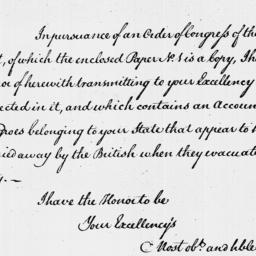 In pursuance of an Order of Congress of the
of which the enclosed Paper No. 1 is a Copy, I h
of herewith transmitting to your Excellency
ected in it, and which contains an Accoun
groes belonging to your State that appear to
ied away by the British when they evacuate
I have the Honor to be
Your Excellency's
Most obt. and hble